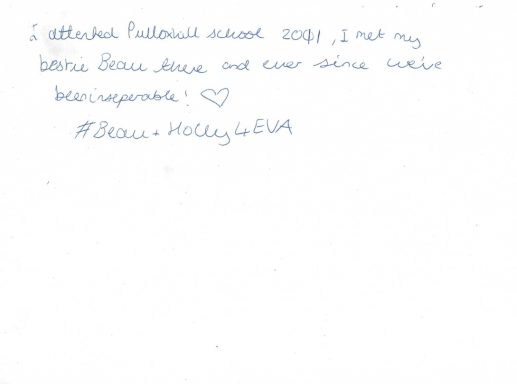 I attended Pulloxhill school 2001, I met my
bestie Beau there and ever since we've
been inseperable! ♡
#Beau + Holly 4 EVA